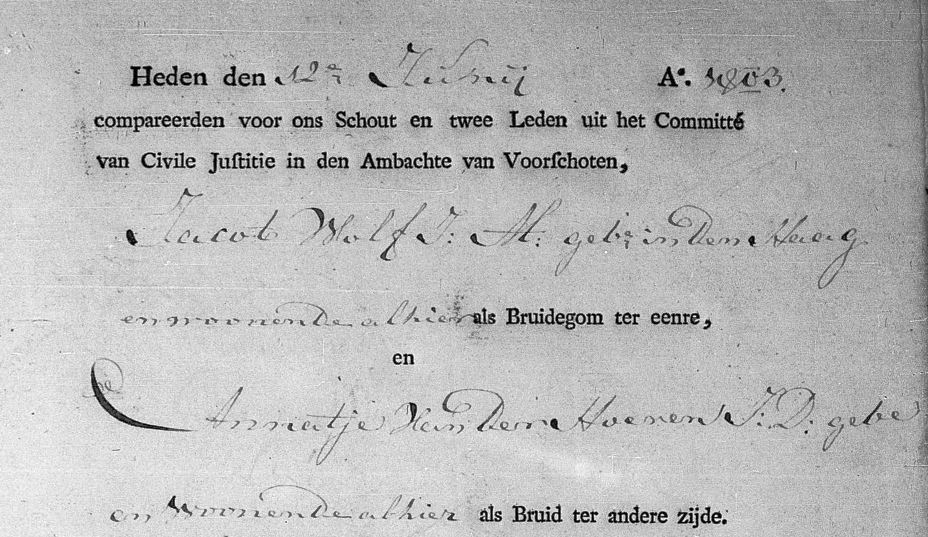 Heden den 12e Junij Ao. 1803.
compareerden voor ons Schout en twee Leden uit het Committé
van Civile Juſtitie in den Ambachte van Voorſchoten,
Jacob Wolf J: M: gebr in Den Haag
en woonende alhier als Bruidegom ter eenre,
en
Annatje Van Der Hoeven J: D: gebe
en woonende alhier als Bruid ter andere zijde.